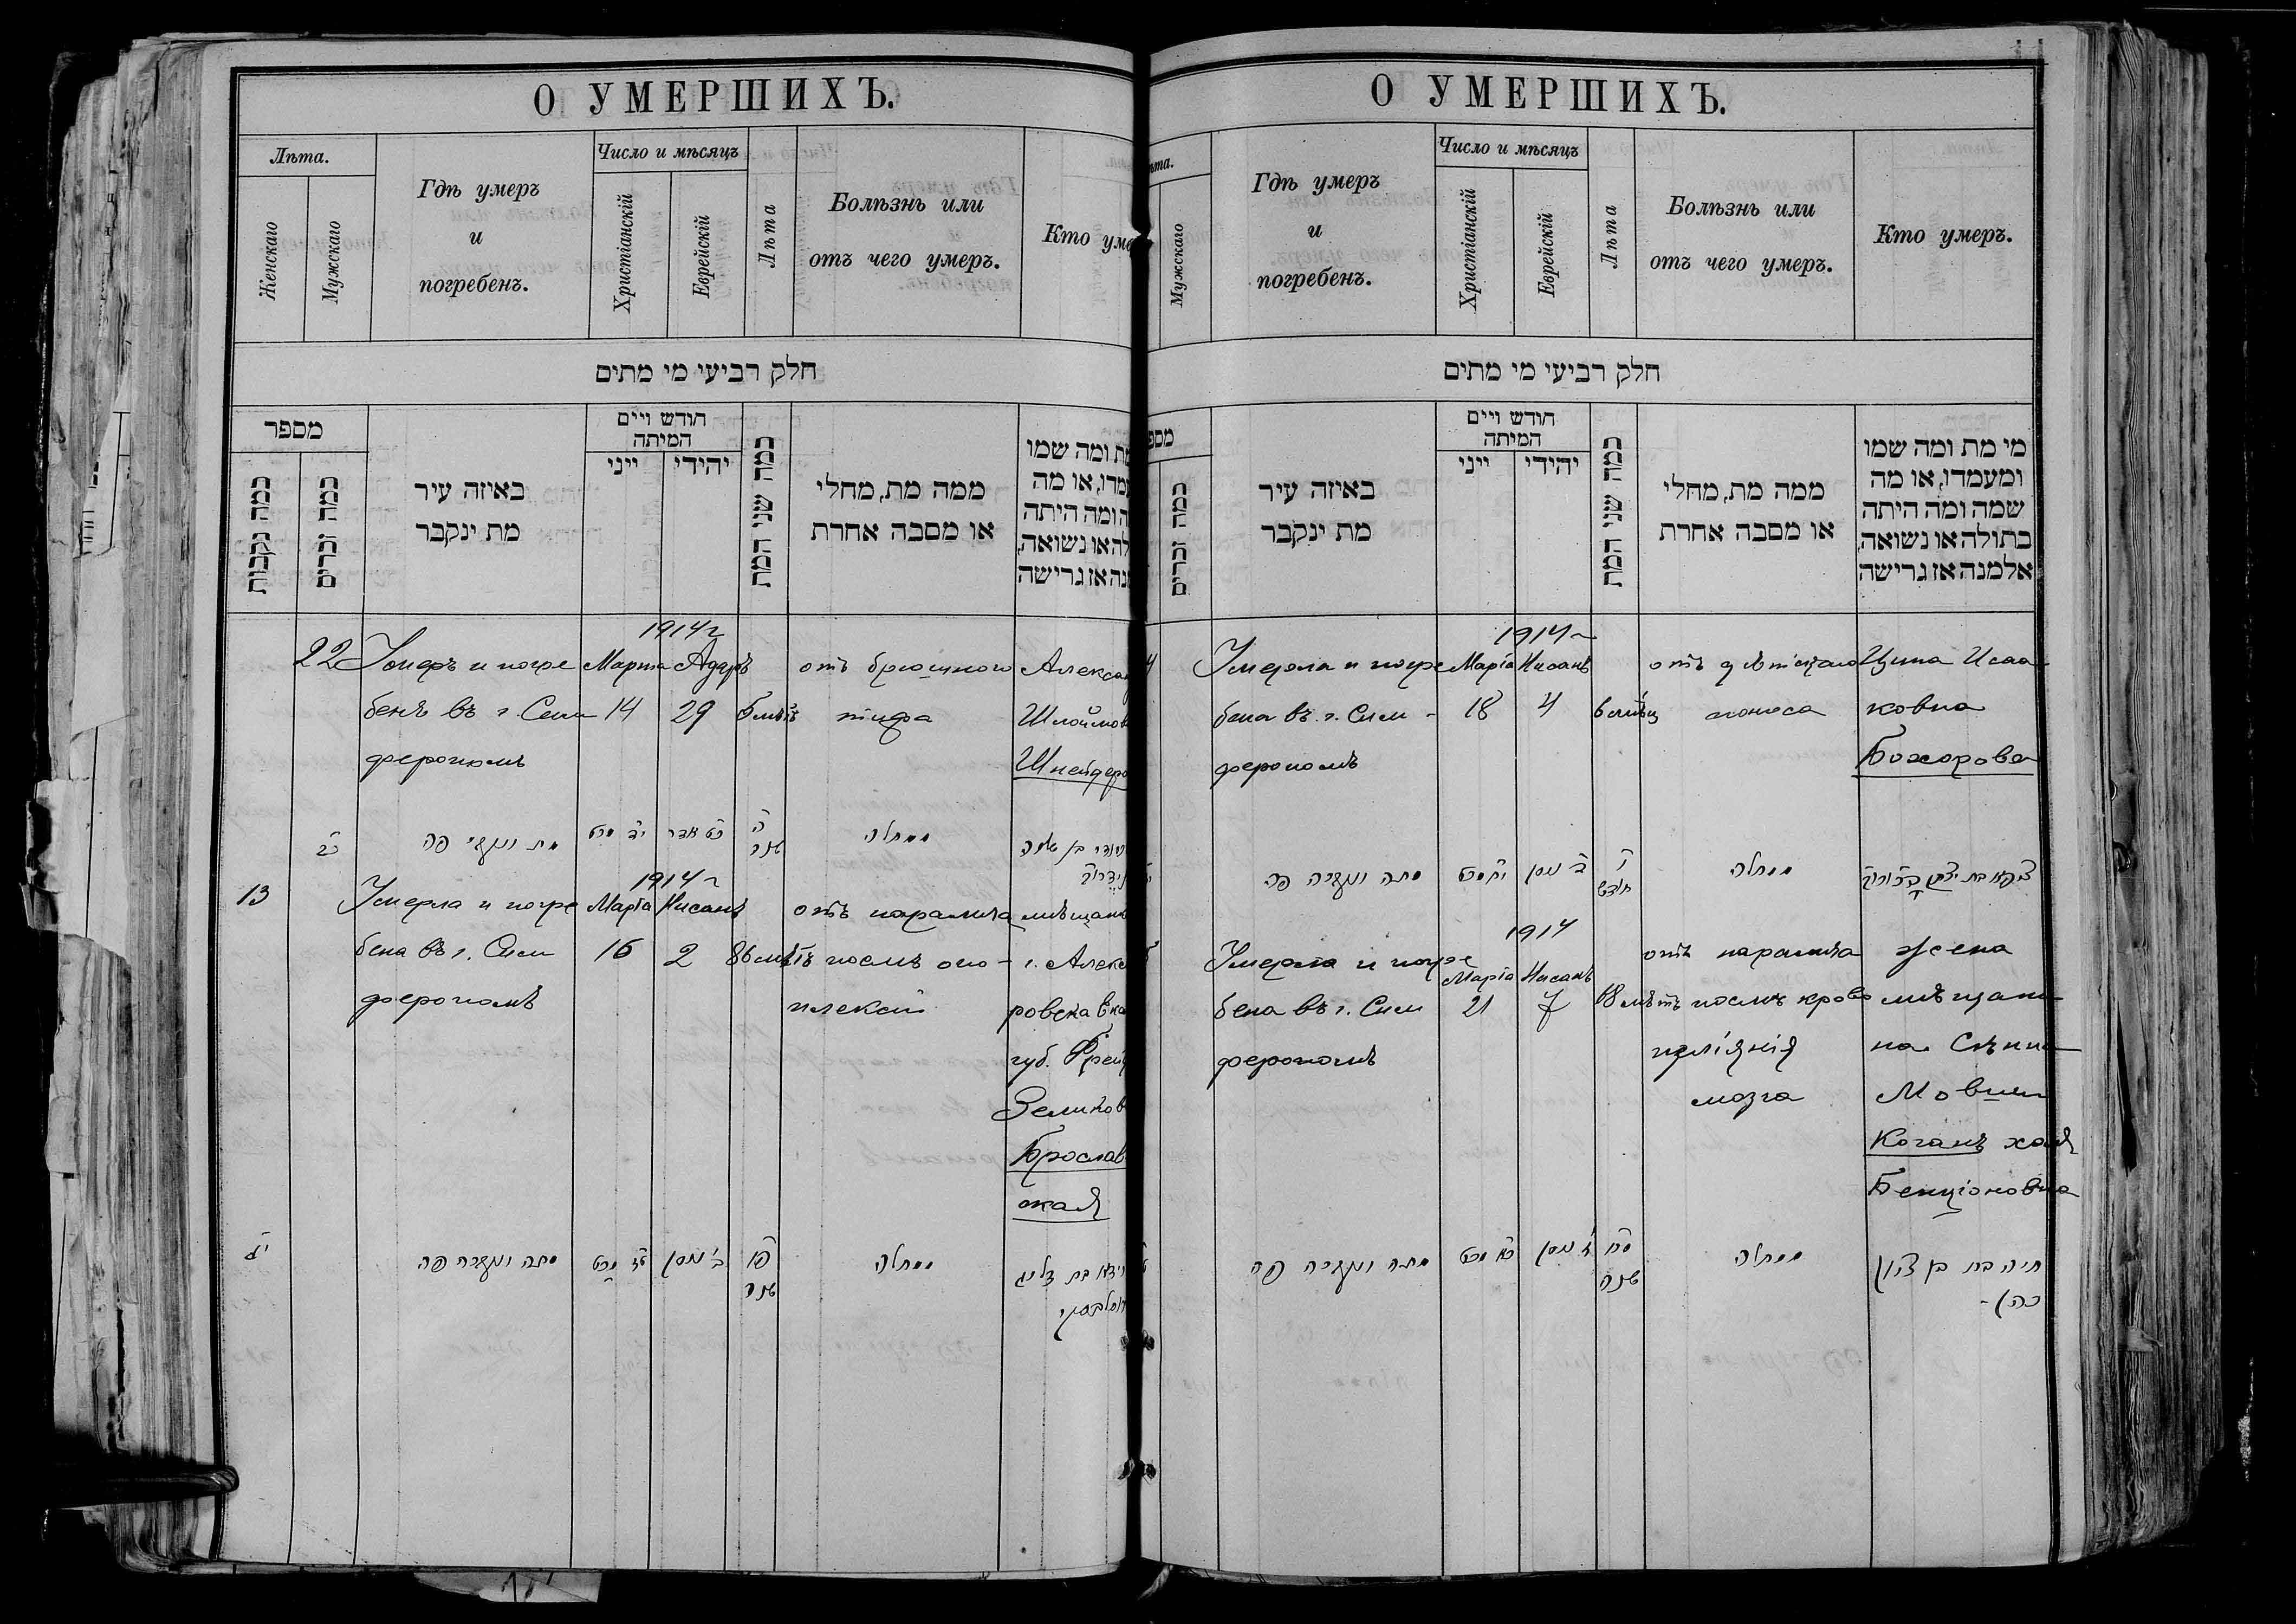 О УМЕРШИХЪ.
Лѣта.
Женскаго
Мужскаго
Гдѣ умеръ
и
погребенъ.
Число и мѣсяцъ
Христіанскій
Еврейскій
Лѣта
Болѣзнь или
отъ чего умеръ.
Кто уме
חלק רביעי מי מתים
מספר
כמה נקבות
כמה זכרים
באיזה עיר
מת ינקבר
חודש ויים
המיתה
ייני
יהידי
כמה שני המת
ממה מת, מחלי
או מסבה אחרת
מת ומה שמו
עמדו, או מה
ה ומה היתה
לה או נשואה,
נה אז גרישה
22
Умеръ и погре
бенъ въ г. Сим
ферополѣ
1914 г
Марта
14
Адаръ
29
5 лѣтъ
отъ брюшного
тифа
Алексан
Шлоймов
Шнейдеро
כ״ב
מת ונקבר פה
י״ד מרט
כ״ט אדר
ה׳
שנה
ממחלה
13
Умерла и погре
бена въ г. Сим
ферополѣ
1914 г
Марта
16
Нисанъ
2
86 лѣтъ
отъ паралича
послѣ апо-
плексіи
мѣщанк
г. Алекс
ровска Ека
губ. Фрей
Зеликов
Брослав
ская
י״ג
מתה ונקברה פה
ט״ז מרט
ב׳ ניסן
פ״ו
שנה
ממחלה
О УМЕРШИХЪ.
ѣта.
Мужскаго
Гдѣ умеръ
и
погребенъ.
Число и мѣсяцъ
Христіанскій
Еврейскій
Лѣта
Болѣзнь или
отъ чего умеръ.
Кто умеръ.
חלק רביעי מי מתים
מספ
כמה זכרים
באיזה עיר
מת ינקבר
חודש ויים
המיתה
ייני
יהידי
כמה שני המת
ממה מת, מחלי
או מסבה אחרת
מי מת ומה שמו
ומעמדו, או מה
שמה ומה היתה
בתולה או נשואה,
אלמנה אז גרישה
4
Умерла и погре
бена въ г. Сим-
ферополѣ
1914 г
Марта
18
Нисанъ
4
6 мѣсяц
отъ дѣтскаго
поноса
Цина Исаа
ковна
Бохорова
מתה ונקברה פה
י״ח מרט
ד׳ ניסן
ו׳
חודש
ממחלה
Умерла и погре
бена въ г. Сим
ферополѣ
1914
Марта
21
Нисанъ
7
68 лѣтъ
отъ паралича
послѣ крово
изліянія
мозга
жена
мѣщани
на
Мовши
Коганъ Хая
Бенціоновна
מתה ונקברה פה
כ״א מרט
ז׳ ניסן
ס״ח
שנה
ממחלה
חיה בת בן ציון
כהן-